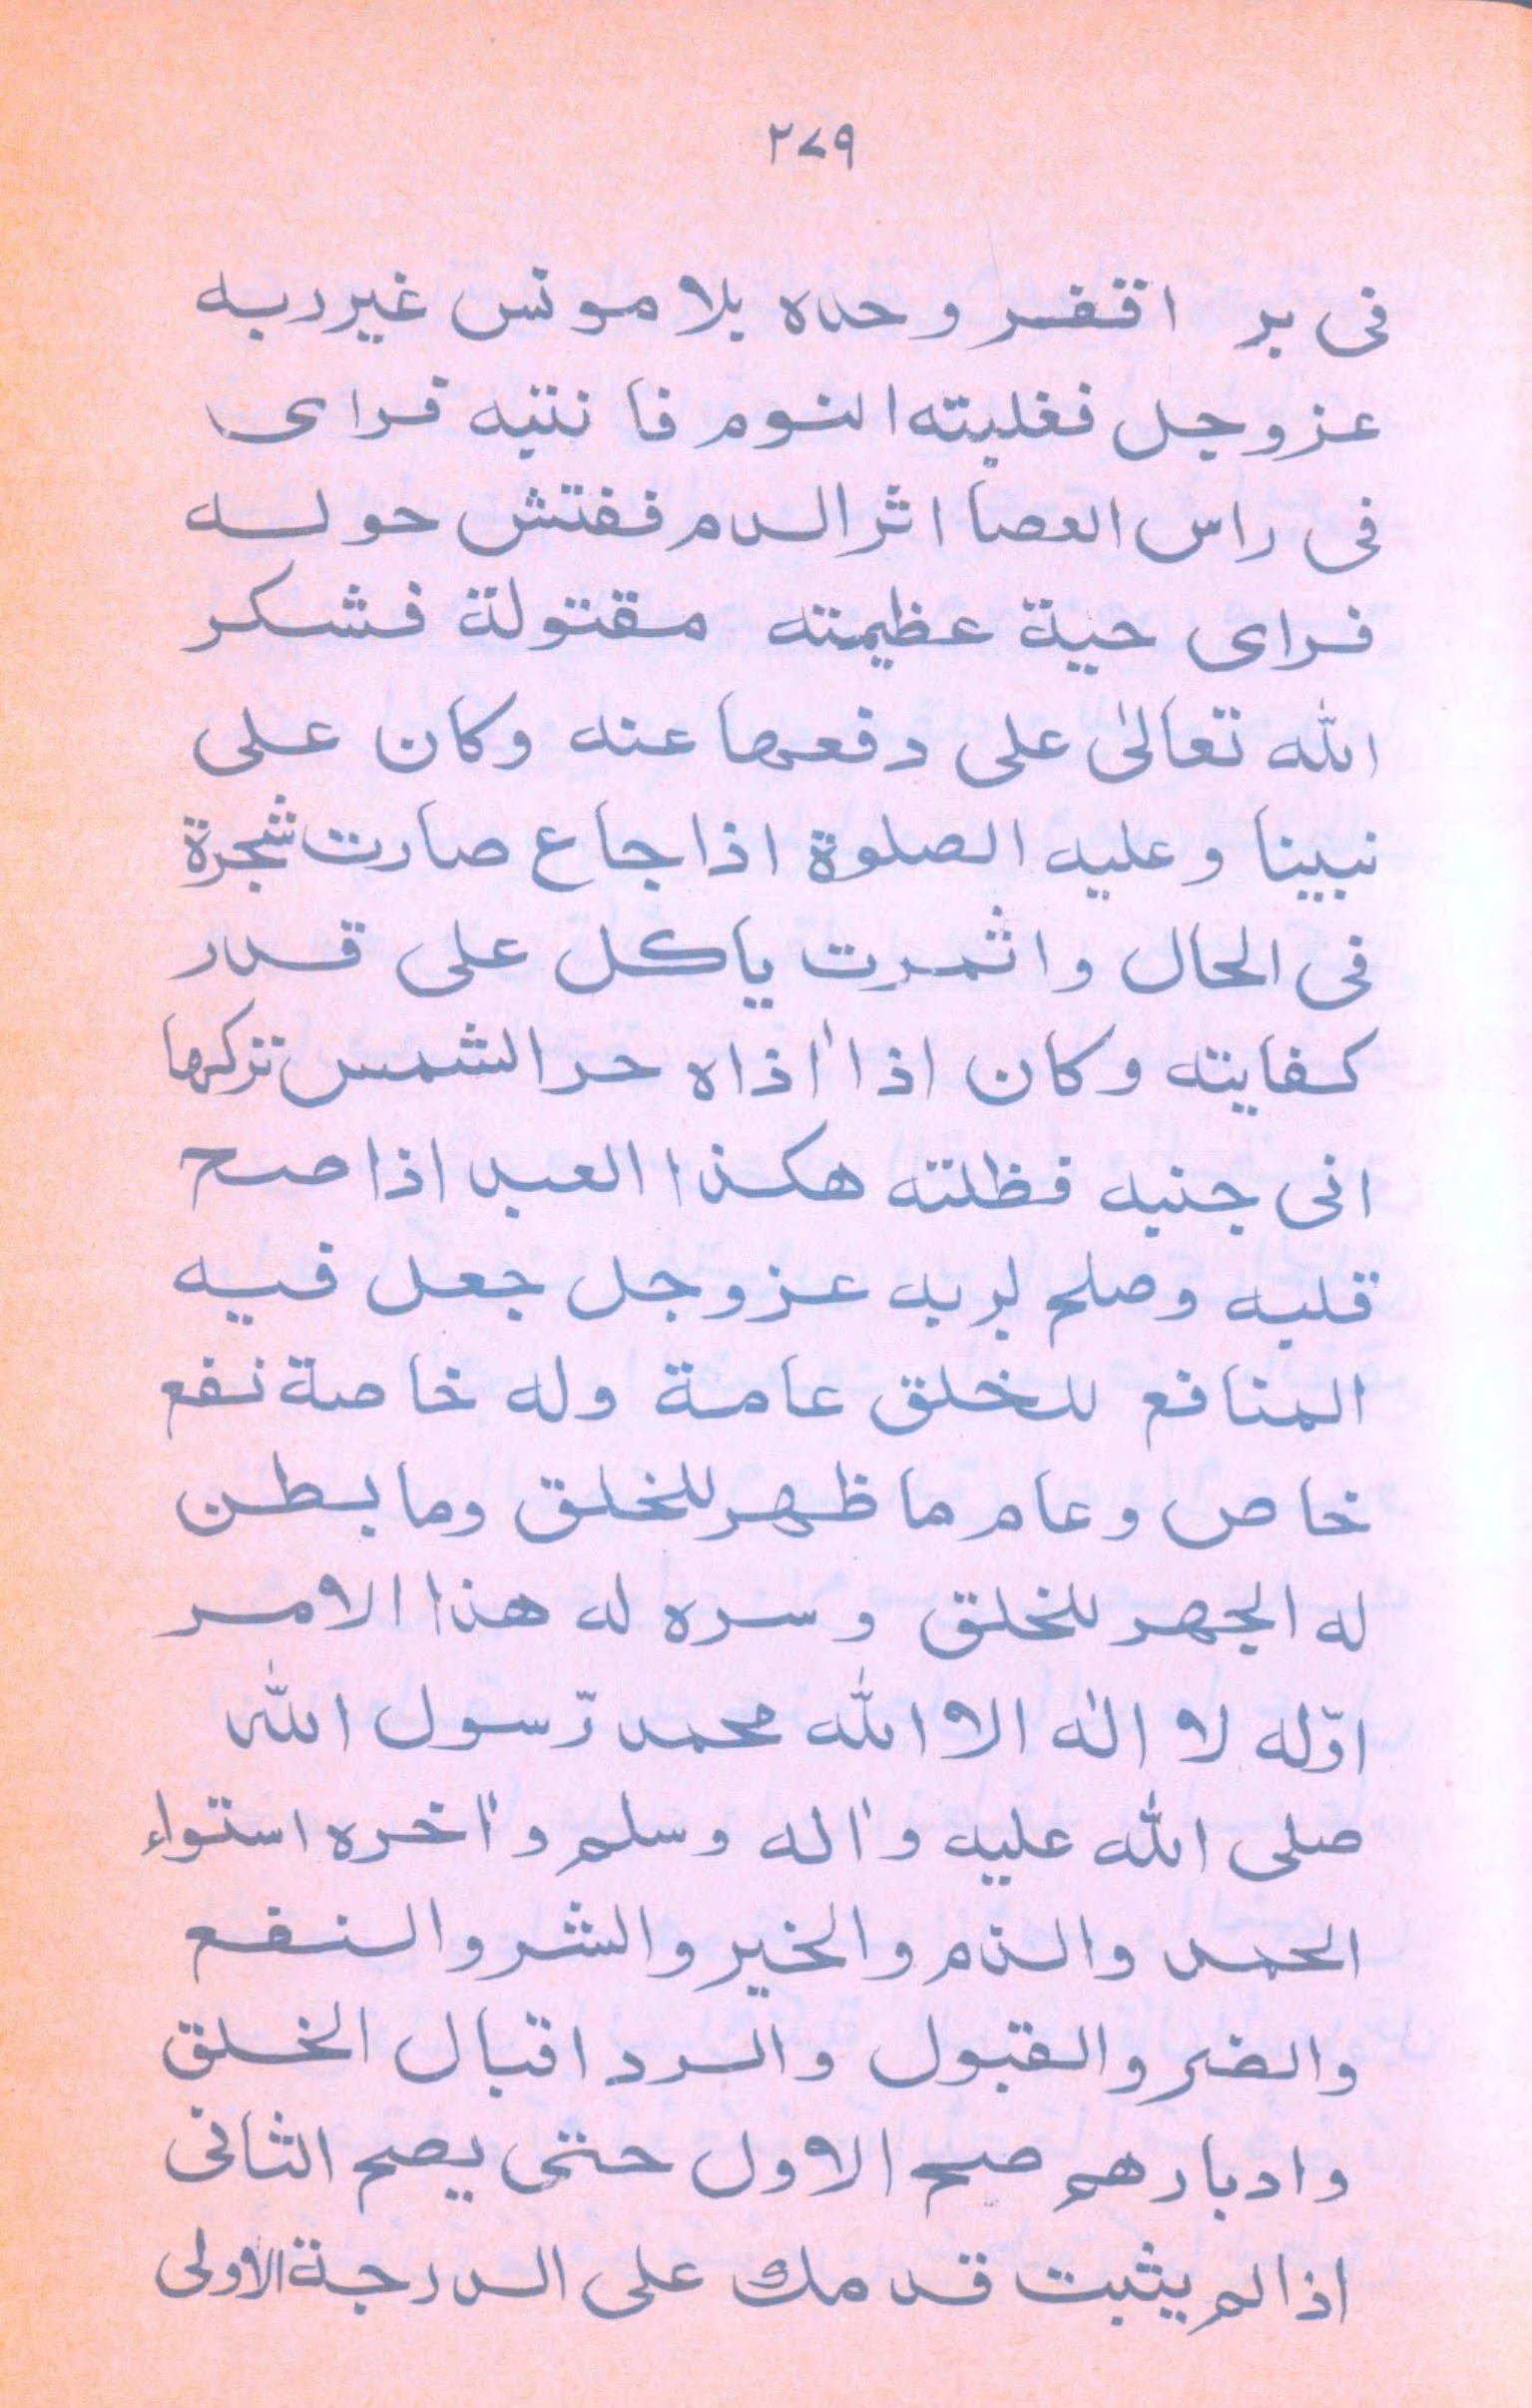 ٢٧٩
فی بر اقفر وحده بلا مونس غیر ربه
عز وجل فغلبته النوم فانتبه فرای
فی راس العصا اثر الدم ففتش حوله
فرای حیة عظیمته مقتولة فشکر
الله تعالیٰ علی دفعها عنه وکان علی
نبینا وعلیه الصلوة اذا جاع صارت شجرة
فی الحال واثمرت یاکل علی قدر
کفایته وکان اذا اٰذاه حر الشمس ترکها
انی جنبه فظلته هکذا العبد اذا صح
قلبه وصلح لربه عز وجل جعل فیه
المنافع للخلق عامة وله خاصة نفع
خاص وعام ما ظهر للخلق وما بطن
له الجهر للخلق وسره له هذا الامر
اوّله لا الٰه الا الله محمد رّسول الله
صلی الله علیه واٰله وسلم واٰخره استواء
الحمد والذم والخیر والشر والنفع
والضر والقبول والرد اقبال الخلق
وادبارهم صح الاول حتی یصح الثانی
اذا لم یثبت قدمك علی الدرجة الاولی